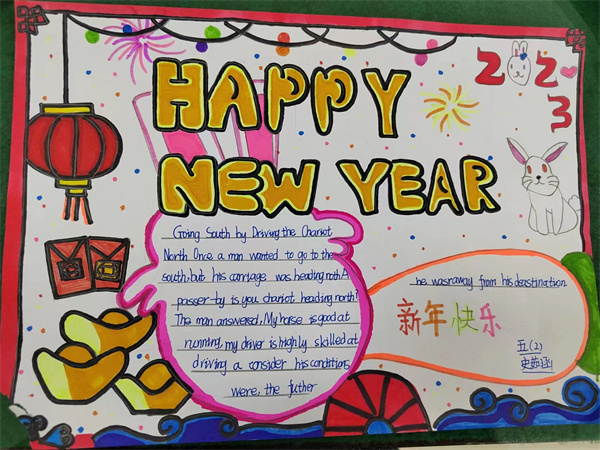 HAPPY
NEW YEAR
2023
Going South by Driving the Chariot
North Once a man wanted to go to the
south, but his carriage was heading noth A
passer-by is you chariot heading north?
The man answered, My horse is good at
running, my driver is highly skilled at
driving a consider his conditions
were, the futher
he was raway from his deastination
新年快乐
五(2)